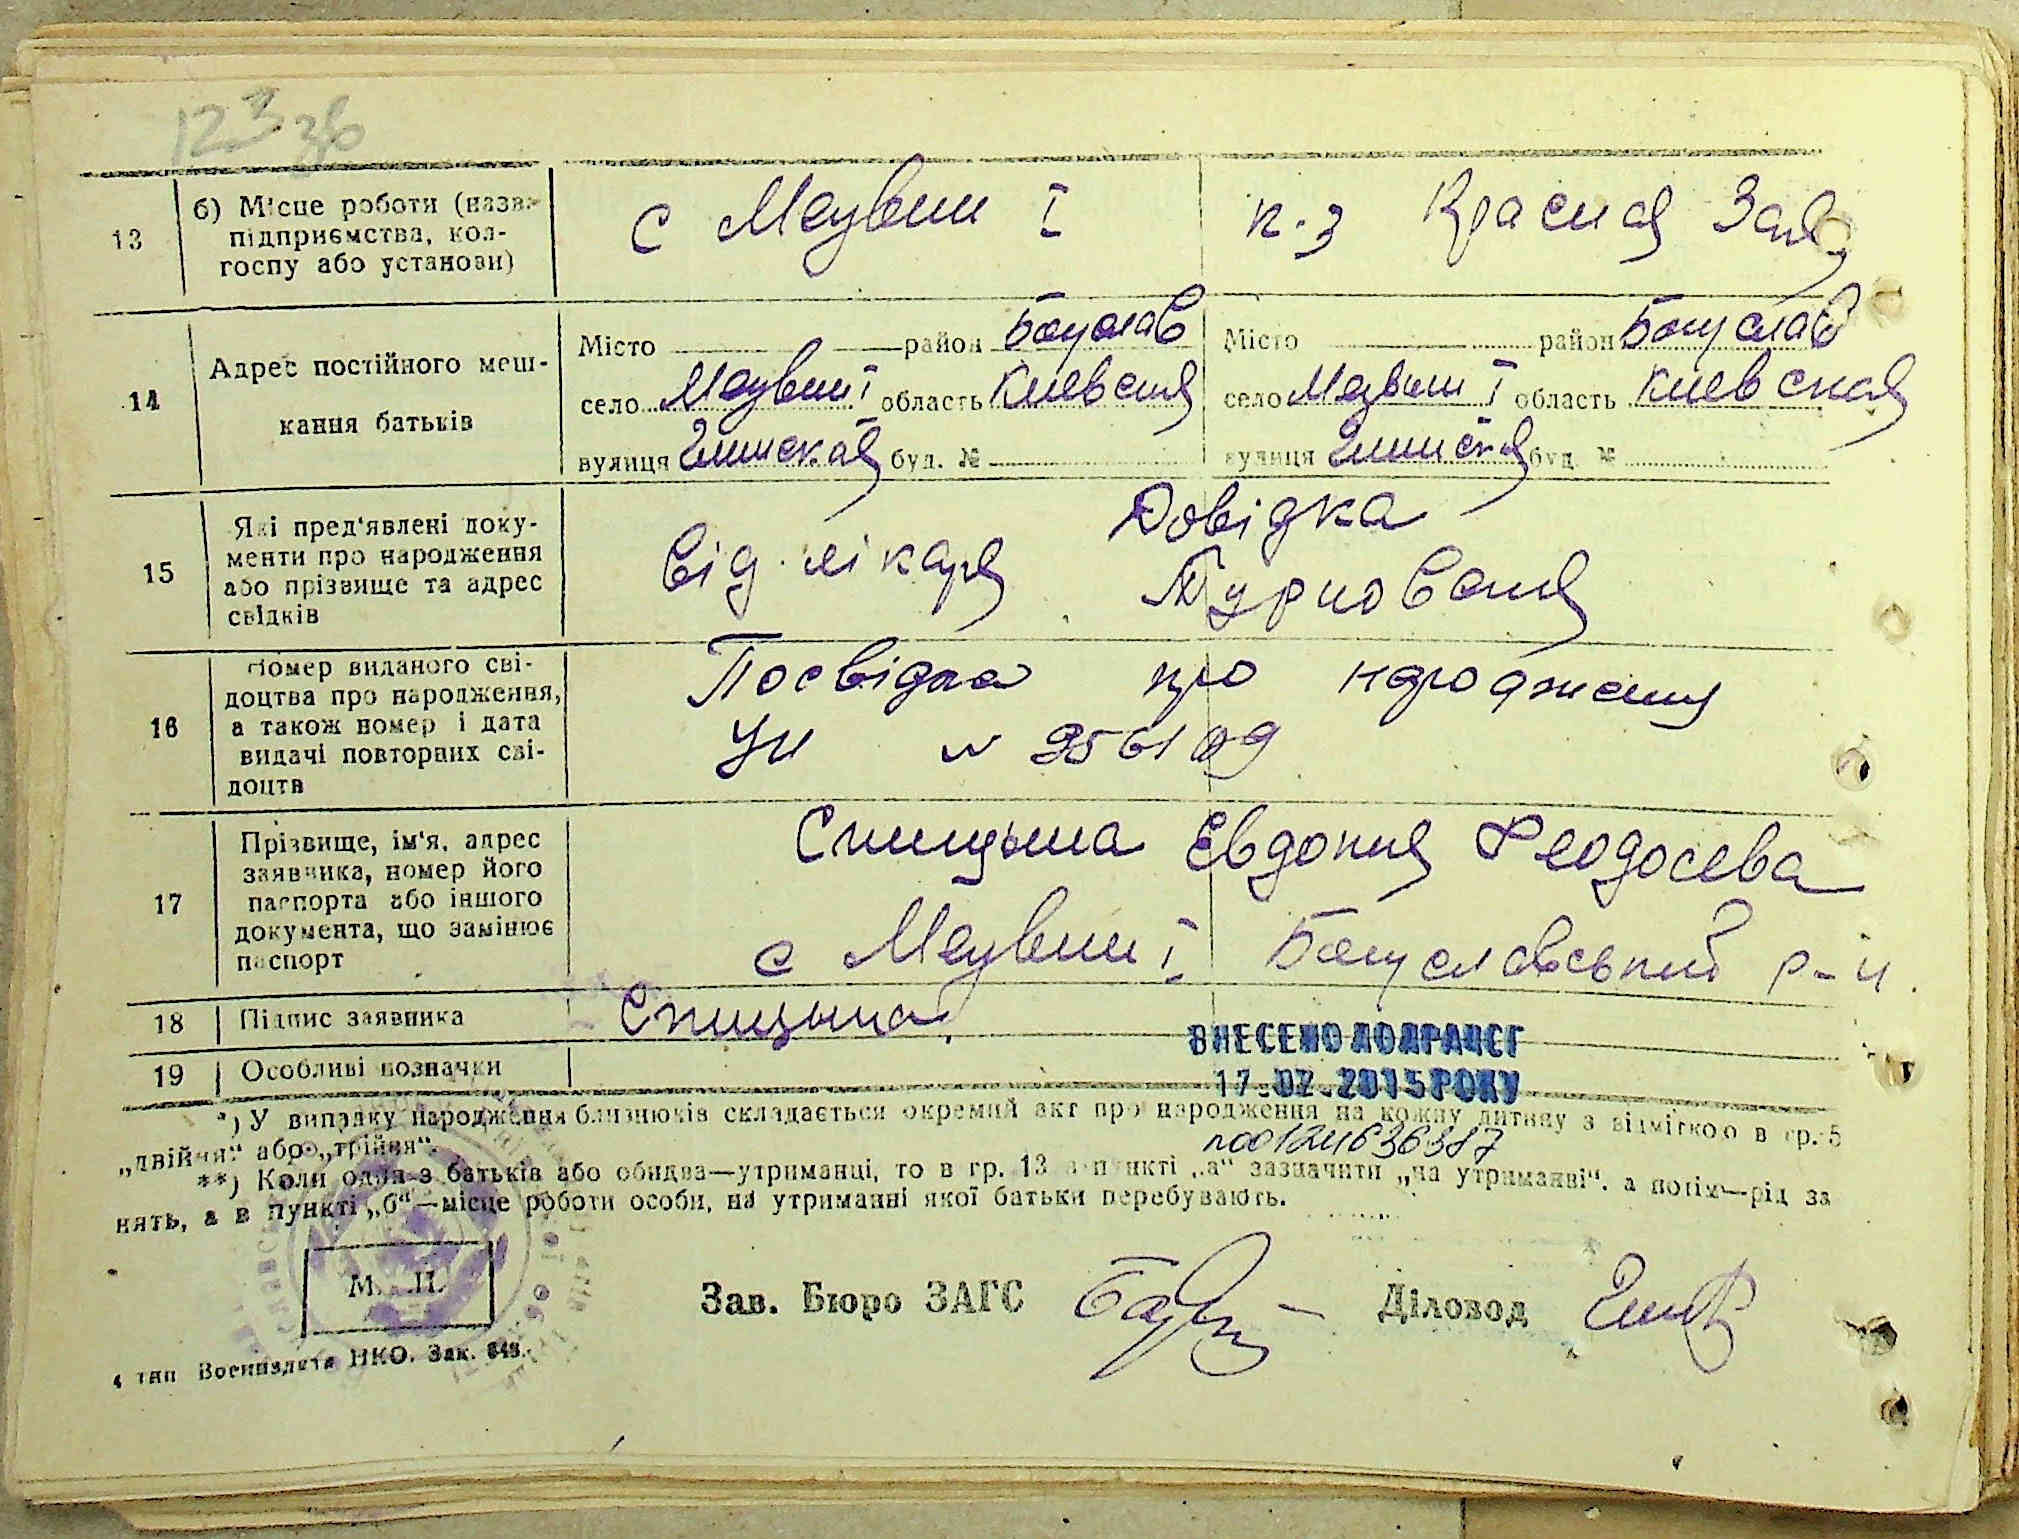 123 зв
13
б) Місце роботи (назва
підприємства, кол-
госпу або установи)
с Медвин I
к-з Красная Заря
14
Адрес постійного меш-
кання батьків
Місто район Богуслав
село Медвин I область Киевская
вулиця буд. №
Місто район Богуслав
село Медвин I область Киевская
вулиця буд. №
15
Які пред'явлені доку-
менти про народження
або прізвище та адрес
свідків
Довідка
від лікаря
16
Номер виданого сві-
доцтва про народження,
а також номер і дата
видачі повторних сві-
доцтв
Посвідка про народження
17
Прізвище, ім'я, адрес
заявника, номер його
паспорта або іншого
документа, що замінює
паспорт
Спицына Евдокия Феодосева
с Медвин I Богуславський р-н
18
Підпис заявника
Спицына
19
Особливі позначки
ВНЕСЕНО ДО ДРАЦСГ
17.02.2015 РОКУ
*) У випадку народження близнюків складається окремий акт про народження на кожну дитину з відміткою в гр. 5
„двійня“ або „трійня“.
00124636387
**) Коли один з батьків або обидва—утриманці, то в гр. 13 в пункті „а“ зазначити „на утриманні“, а потім—рід за
нять, а в пункті „б“—місце роботи особи, на утриманні якої батьки перебувають.
М. П.
Зав. Бюро ЗАГС
Діловод
4 тип Воениздата НКО. Зак. 648.